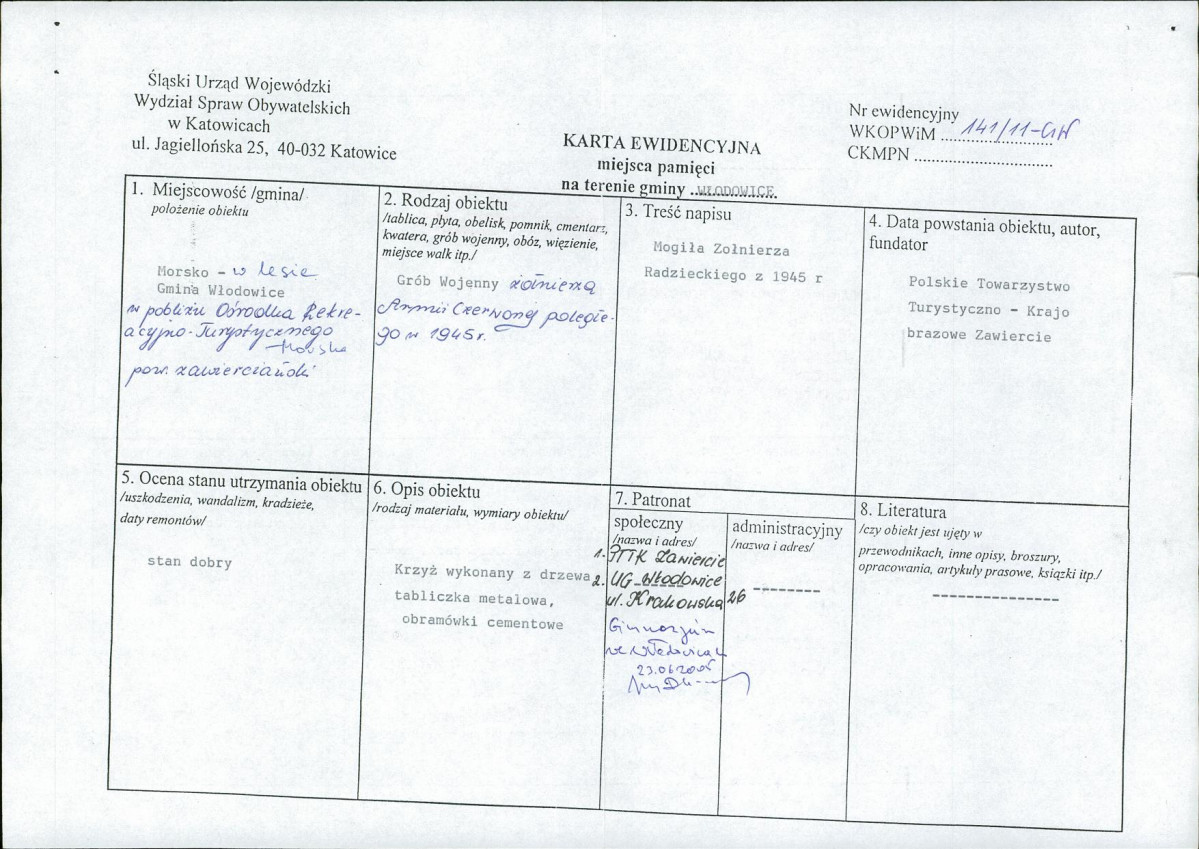 Śląski Urząd Wojewódzki
Wydział Spraw Obywatelskich
w Katowicach
ul. Jagiellońska 25, 40-032 Katowice
KARTA EWIDENCYJNA
miejsca pamięci
na terenie gminy ..WŁODOWICE.
Nr ewidencyjny
WKOPWiM 141/11-GW
CKMPN
1. Miejscowość /gmina/
położenie obiektu
Morsko - w lesie
Gmina Włodowice
w pobliżu Ośrodka Rekre-
acyjno-Turystycznego
Morsko
pow. zawierciański
2. Rodzaj obiektu
/tablica, płyta, obelisk, pomnik, cmentarz,
kwatera, grób wojenny, obóz, więzienie,
miejsce walk itp./
Grób Wojenny żołnierza
Armii Czerwonej poległe-
go w 1945r.
3. Treść napisu
Mogiła Zołnierza
Radzieckiego z 1945 r
4. Data powstania obiektu, autor,
fundator
Polskie Towarzystwo
Turystyczno - Krajo
brazowe Zawiercie
5. Ocena stanu utrzymania obiektu
/uszkodzenia, wandalizm, kradzieże,
daty remontów/
stan dobry
6. Opis obiektu
/rodzaj materiału, wymiary obiektu/
Krzyż wykonany z drzewa
tabliczka metalowa,
obramówki cementowe
7. Patronat
społeczny
/nazwa i adres/
1. PTTK Zawiercie
2. UG Włodowice
ul. Krakowska 26
Gimnazjum
we Włodowicach
23.06.2005
administracyjny
/nazwa i adres/
---------
8. Literatura
/czy obiekt jest ujęty w
przewodnikach, inne opisy, broszury,
opracowania, artykuły prasowe, książki itp./
---------------